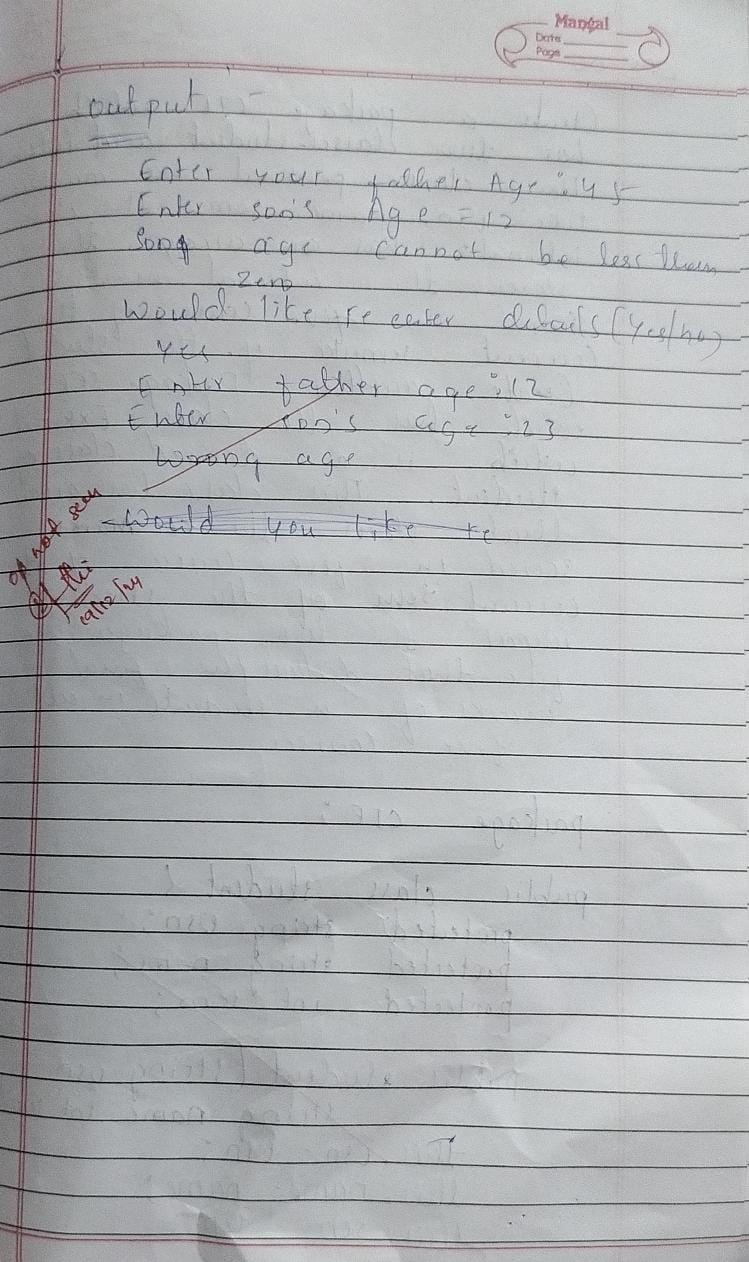 Mangal
Date
Page
output :-
Enter your father Age : 45
Enter son's Age = 12
Song age cannot be less than
zero
Would like re enter details (Yes/no)
Yes
Enter father age : 12
Enter son's age : 23
Wrong age
Would you like re
not seen